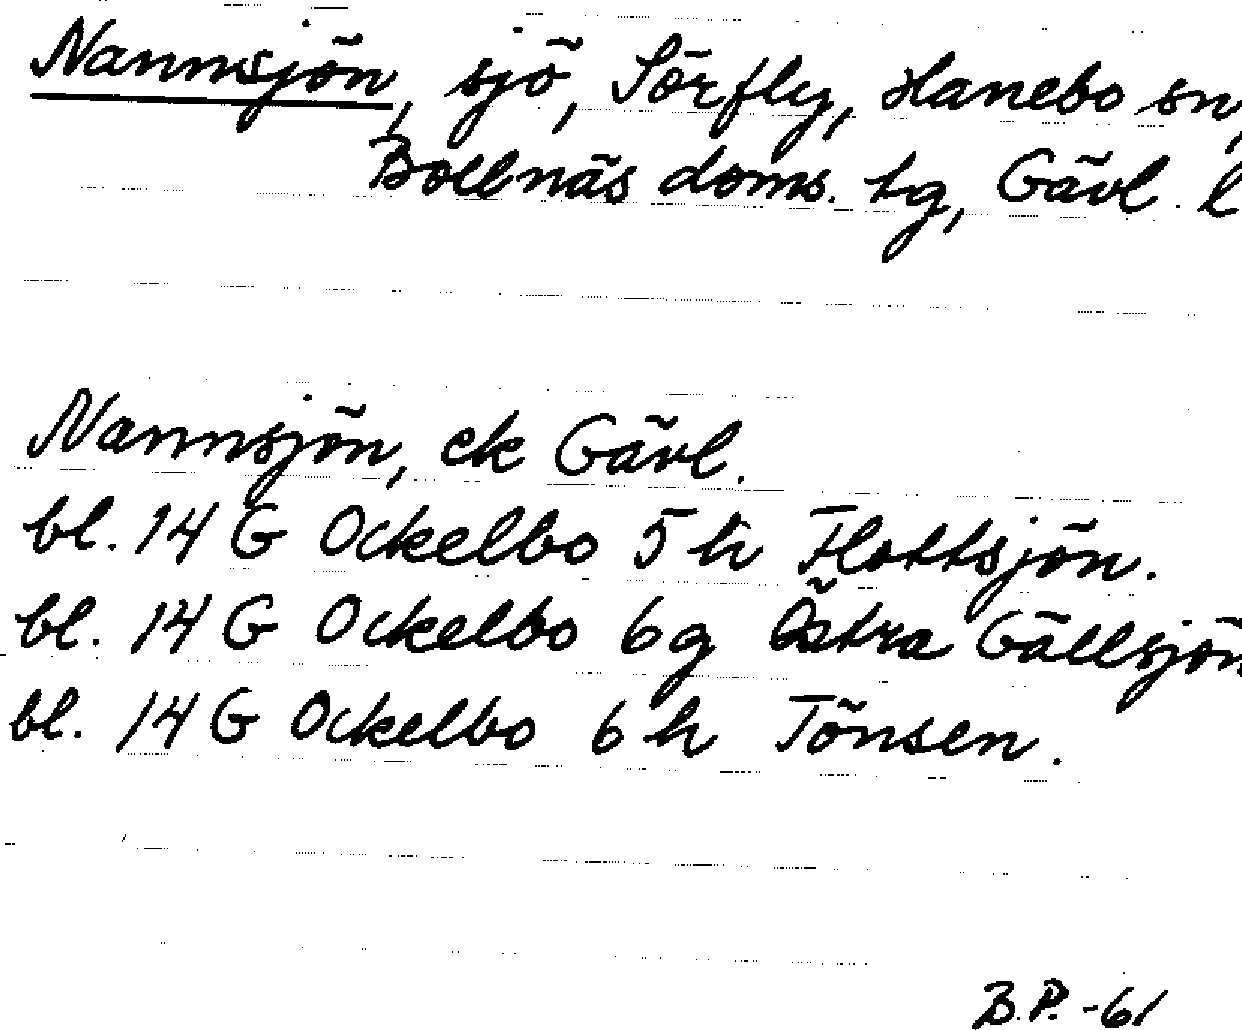 Nannsjön, sjö, Sörfly, Hanebo sn,
Bollnäs doms. tg, Gävl. l
Nannsjön, ek Gävl.
bl. 14 G Ockelbo 5 h Flottsjön.
bl. 14 G Ockelbo 6g Östra Gällsjön
bl. 14 G Ockelbo 6 h Tönsen.
B.P. -61